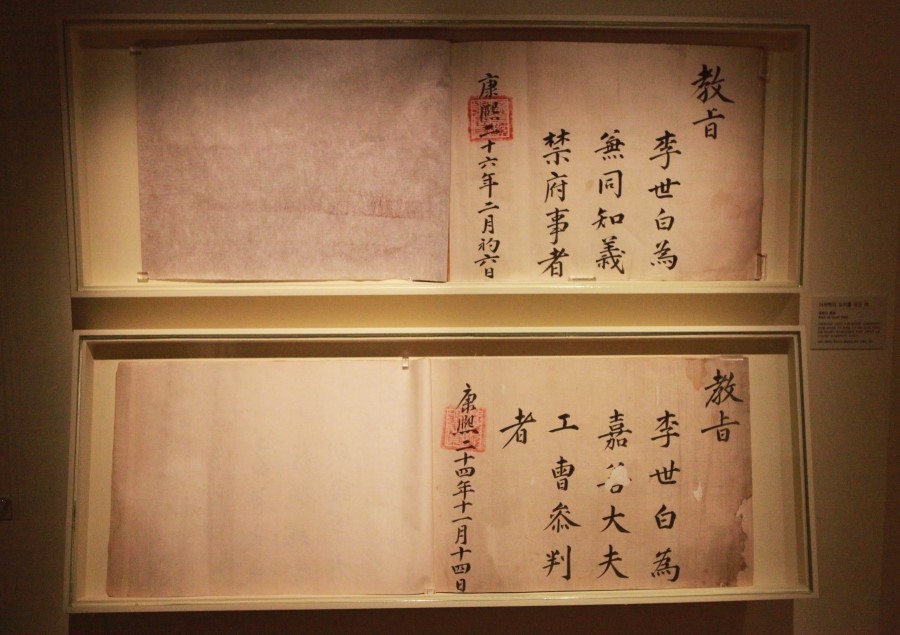 教旨
李世白為
兼同知義
禁府事者
康熙二十六年二月初六日
教旨
李世白為
嘉善大夫
工曺叅判
者
康熙二十四年十一月十四日